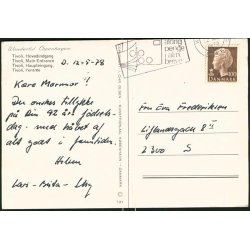 Wonderful Copenhagen
Tivoli, Hovedindgang
Tivoli, Main Entrance
Tivoli, Haupteingang
Tivoli, l'entrée
D. 12-9-78
Kære Mormor!
Du ønskes tillykke
på din 92 års fødsels-
dag. med håbet af
alt godt i fremtiden.
Hilsen
Lars-Brita-
send
penge
i
brev
DANMARK
100
Fru Frederiksen
Liflandsgade 8
2300 S